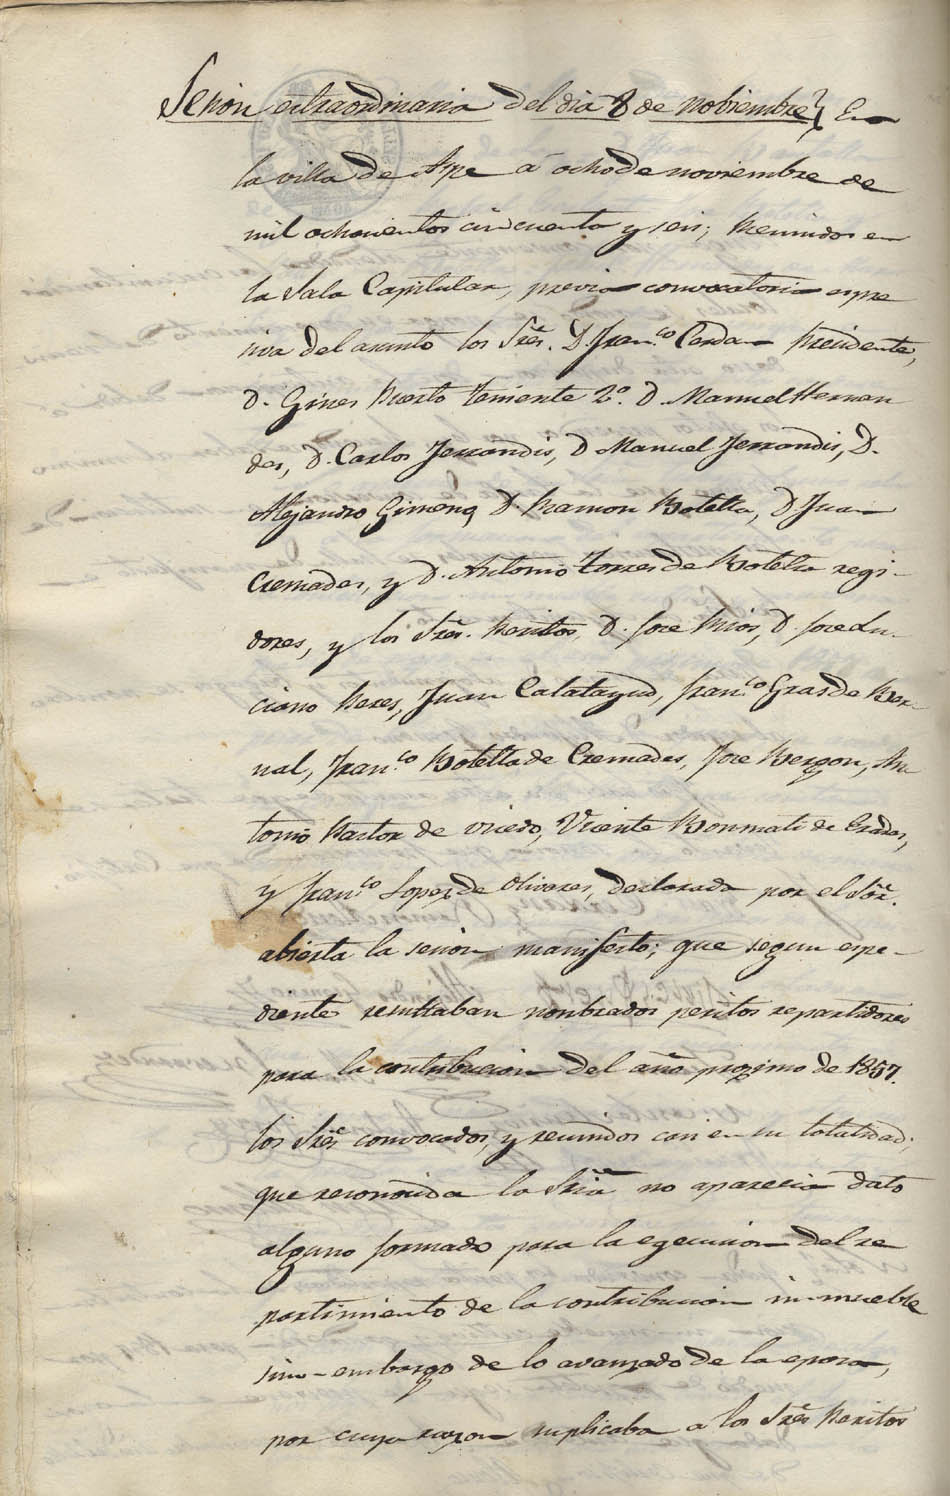 Sesion extraordinaria del dia 8 de nobiembre} En
la villa de Aspe á ocho de noviembre de
mil ochocientos cincuenta y seis; Reunidos en
la Sala Capitular, previa convocatoria espre
siva del asunto los Sres. D. Fran.co Cerdan Presidente,
D. Gines Puerto teniente 2º. D. Manuel Hernan
des, D. Carlos Ferrandis, D Manuel Ferrandis, D.
Alejandro Gimeno, D. Ramon Botella, D. Juan
Cremades, y D. Antonio Torres de Botella regi-
dores, y los Sres. Peritos, D. Jose Rios, D. Jose Lu-
ciano Peres, Juan Calatayud, Fran.co Gras de Ber
nal, Fran.co Botella de Cremades, Jose Bergon, An
tonio Pastor de Vicedo, Vicente Bonmati de
y Fran.co Lopez de Olivares, declarada por el Sor.
abierta la sesion manifesto; que segun espe-
diente resultaban nonbrados peritos repartidores
para la contribucion del año procsimo de 1857.
los Sres convocados, y reunidos casi en su totalidad;
que reconocida la Sria no aparecia dato
alguno formado para la egecucion del re
partimiento de la contribucion in-mueble
sin-embargo de lo avanzado de la epoca,
por cuya razon suplicaba a los Sres Peritos